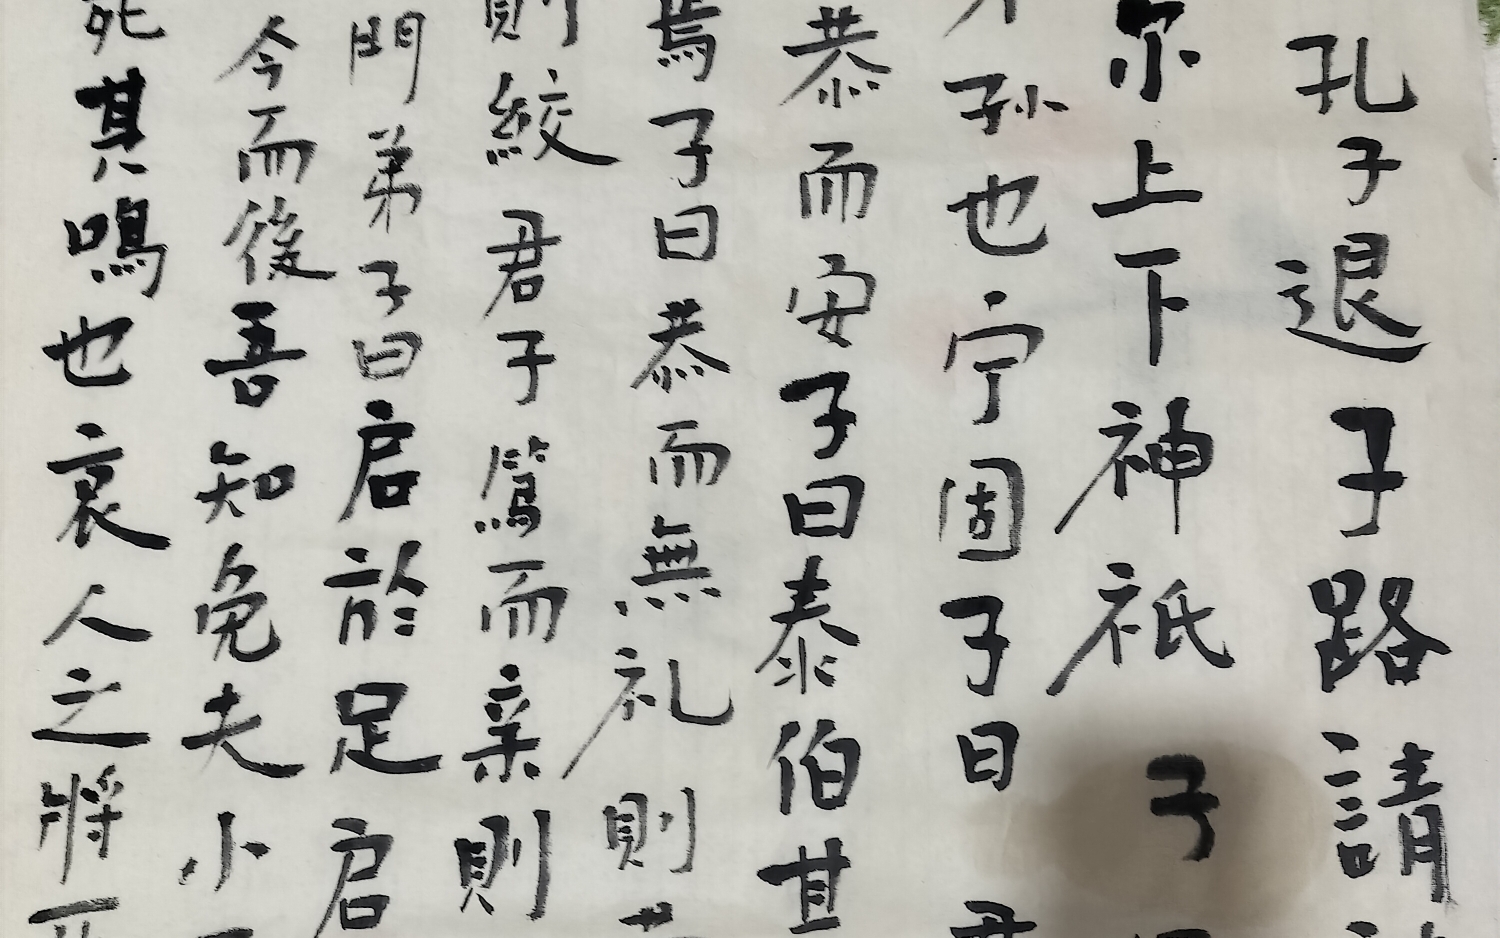 孔子退子路請
尔上下神祇子
孙也宁固子曰君
恭而安子曰泰伯其
焉子曰恭而無礼則
則絞君子篤而亲則
門弟子曰启於足启
今而後吾知免夫小
死其鳴也哀人之將